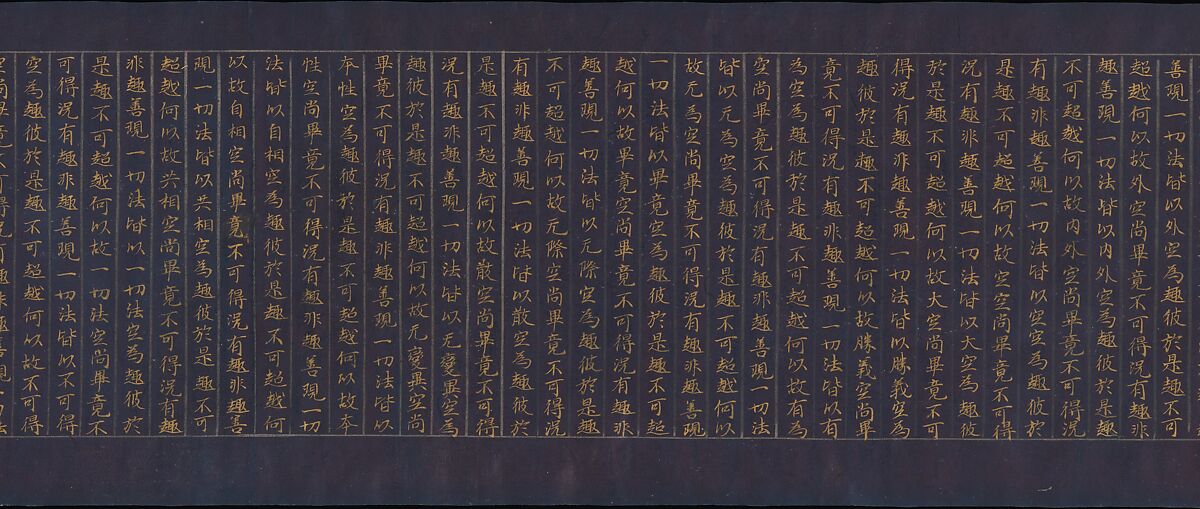 善現一切法皆以外空為趣彼於是趣不可
超越何以故外空尚畢竟不可得況有趣非
趣善現一切法皆以內外空為趣彼於是趣
不可超越何以故內外空尚畢竟不可得況
有趣非趣善現一切法皆以空空為趣彼於
是趣不可超越何以故空空尚畢竟不可得
況有趣非趣善現一切法皆以大空為趣彼
於是趣不可超越何以故大空尚畢竟不可
得況有趣非趣善現一切法皆以勝義空為
趣彼於是趣不可超越何以故勝義空尚畢
竟不可得況有趣非趣善現一切法皆以有
為空為趣彼於是趣不可超越何以故有為
空尚畢竟不可得況有趣非趣善現一切法
皆以无為空為趣彼於是趣不可超越何以
故无為空尚畢竟不可得況有趣非趣善現
一切法皆以畢竟空為趣彼於是趣不可超
越何以故畢竟空尚畢竟不可得況有趣非
趣善現一切法皆以无際空為趣彼於是趣
不可超越何以故无際空尚畢竟不可得況
有趣非趣善現一切法皆以散空為趣彼於
是趣不可超越何以故散空尚畢竟不可得
況有趣非趣善現一切法皆以无變異空為
趣彼於是趣不可超越何以故无變異空尚
畢竟不可得況有趣非趣善現一切法皆以
本性空為趣彼於是趣不可超越何以故本
性空尚畢竟不可得況有趣非趣善現一切
法皆以自相空為趣彼於是趣不可超越何
以故自相空尚畢竟不可得況有趣非趣善
現一切法皆以共相空為趣彼於是趣不可
超越何以故共相空尚畢竟不可得況有趣
非趣善現一切法皆以一切法空為趣彼於
是趣不可超越何以故一切法空尚畢竟不
可得況有趣非趣善現一切法皆以不可得
空為趣彼於是趣不可超越何以故不可得